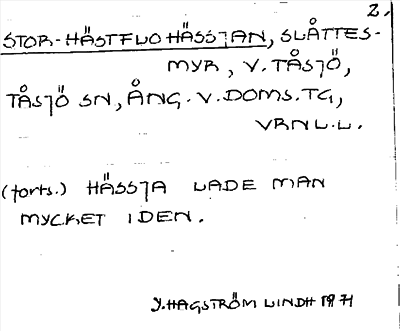 2.
STOR-HÄSTFLOHÄSSJAN, SLÅTTES-
MYR, V. TÅSJÖ,
TÅSJÖ SN, ÅNG. V. DOMS. TG,
VRNL.L.
(forts.) HÄSSJA LADE MAN
MYCKET I DEN.
Y. HAGSTRÖM LINDH 1971